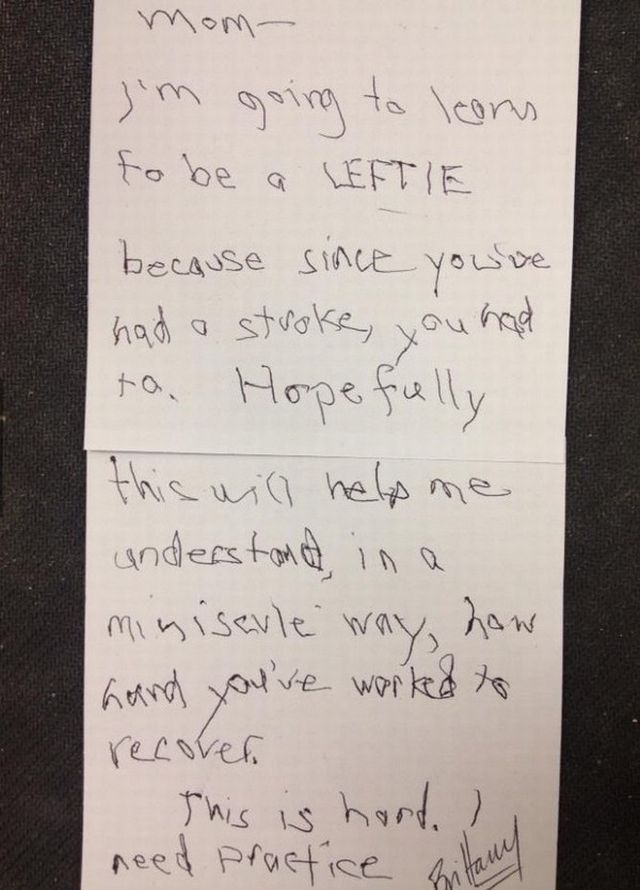 Mom—
I'm going to learn
to be a LEFTIE
because since you've
had a stroke, you had
to. Hopefully
this will help me
understand, in a
miniscule way, how
hard you've worked to
recover.
This is hard. I
need practice Brittany